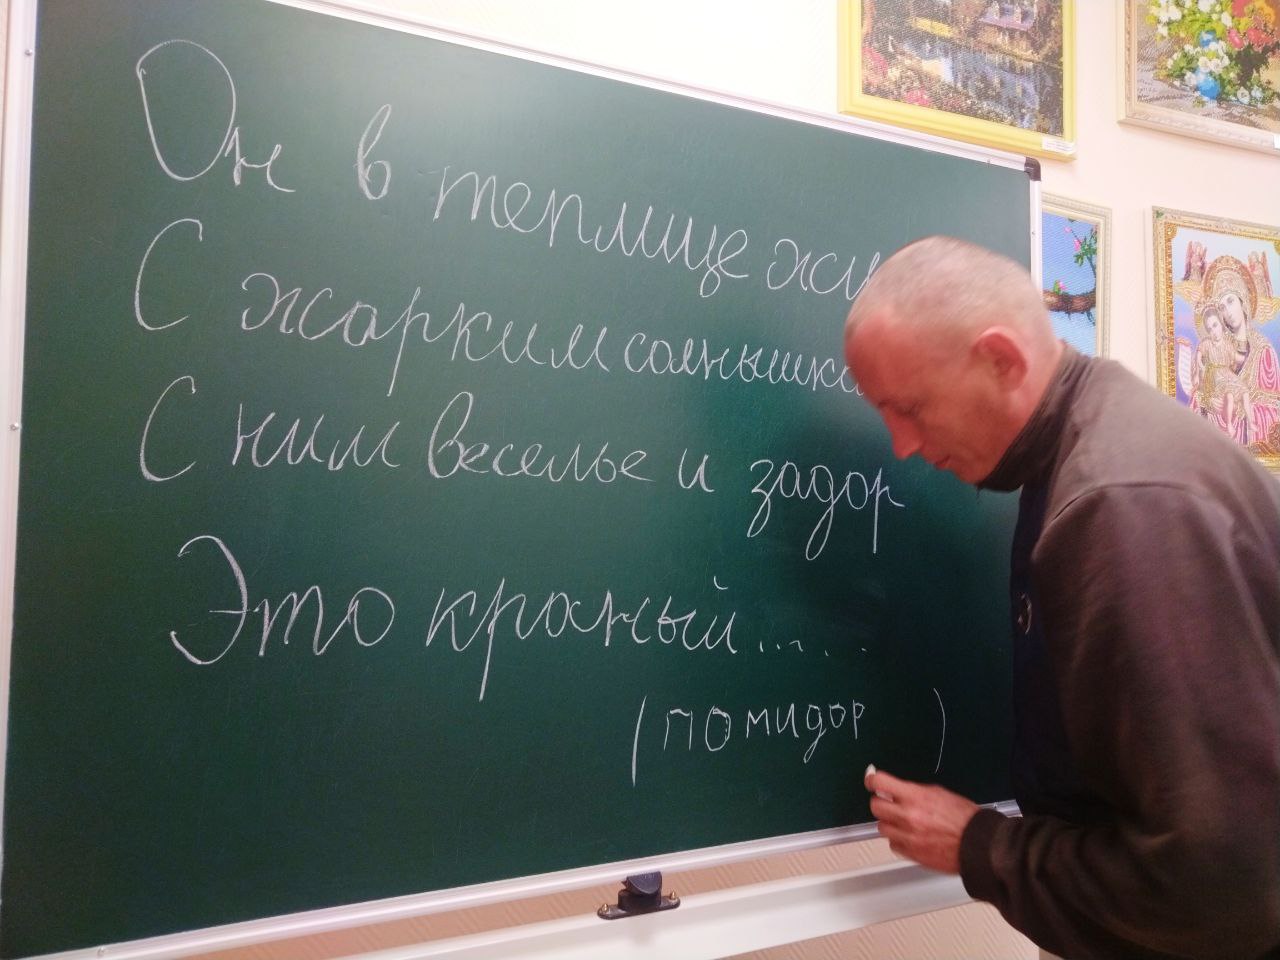 Он в теплице
С жарким
С ним веселье и задор
Это краный.....
(помидор )